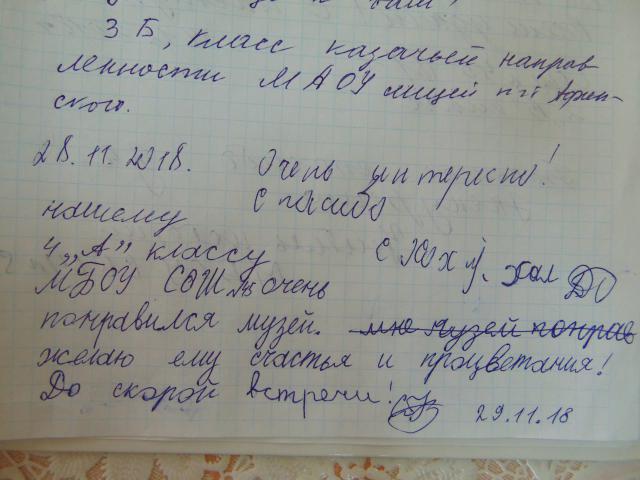 3 Б, класс казачьей направ
ленности МАОУ лицей пгт Афип-
ского.
28.11.2018. Очень интересно!
Спасибо
нашему
4 „А” классу
МБОУ СОШ очень
понравился музей. мне музей понрав
желаю ему счастья и процветания!
До скорой встречи!
29.11.18